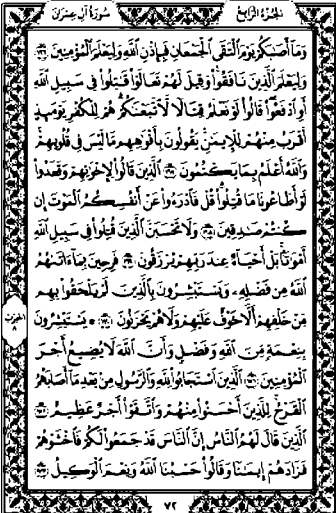 الجزء الرابع
سورة آل عمران
وَمَا أَصَابَكُمْ يَوْمَ الْتَقَى الْجَمْعَانِ فَبِإِذْنِ اللَّهِ وَلِيَعْلَمَ الْمُؤْمِنِينَ ﴿١٦٦﴾
وَلِيَعْلَمَ الَّذِينَ نَافَقُوا وَقِيلَ لَهُمْ تَعَالَوْا قَاتِلُوا فِي سَبِيلِ اللَّهِ
أَوِ ادْفَعُوا قَالُوا لَوْ نَعْلَمُ قِتَالًا لَاتَّبَعْنَاكُمْ هُمْ لِلْكُفْرِ يَوْمَئِذٍ
أَقْرَبُ مِنْهُمْ لِلْإِيمَانِ يَقُولُونَ بِأَفْوَاهِهِمْ مَا لَيْسَ فِي قُلُوبِهِمْ
وَاللَّهُ أَعْلَمُ بِمَا يَكْتُمُونَ ﴿١٦٧﴾ الَّذِينَ قَالُوا لِإِخْوَانِهِمْ وَقَعَدُوا
لَوْ أَطَاعُونَا مَا قُتِلُوا قُلْ فَادْرَءُوا عَنْ أَنْفُسِكُمُ الْمَوْتَ إِنْ
كُنْتُمْ صَادِقِينَ ﴿١٦٨﴾ وَلَا تَحْسَبَنَّ الَّذِينَ قُتِلُوا فِي سَبِيلِ اللَّهِ
أَمْوَاتًا بَلْ أَحْيَاءٌ عِنْدَ رَبِّهِمْ يُرْزَقُونَ ﴿١٦٩﴾ فَرِحِينَ بِمَا آتَاهُمُ
اللَّهُ مِنْ فَضْلِهِ وَيَسْتَبْشِرُونَ بِالَّذِينَ لَمْ يَلْحَقُوا بِهِمْ
مِنْ خَلْفِهِمْ أَلَّا خَوْفٌ عَلَيْهِمْ وَلَا هُمْ يَحْزَنُونَ ﴿١٧٠﴾ يَسْتَبْشِرُونَ
بِنِعْمَةٍ مِنَ اللَّهِ وَفَضْلٍ وَأَنَّ اللَّهَ لَا يُضِيعُ أَجْرَ
الْمُؤْمِنِينَ ﴿١٧١﴾ الَّذِينَ اسْتَجَابُوا لِلَّهِ وَالرَّسُولِ مِنْ بَعْدِ مَا أَصَابَهُمُ
الْقَرْحُ لِلَّذِينَ أَحْسَنُوا مِنْهُمْ وَاتَّقَوْا أَجْرٌ عَظِيمٌ ﴿١٧٢﴾
الَّذِينَ قَالَ لَهُمُ النَّاسُ إِنَّ النَّاسَ قَدْ جَمَعُوا لَكُمْ فَاخْشَوْهُمْ
فَزَادَهُمْ إِيمَانًا وَقَالُوا حَسْبُنَا اللَّهُ وَنِعْمَ الْوَكِيلُ ﴿١٧٣﴾
الحزب
٨
٧٢